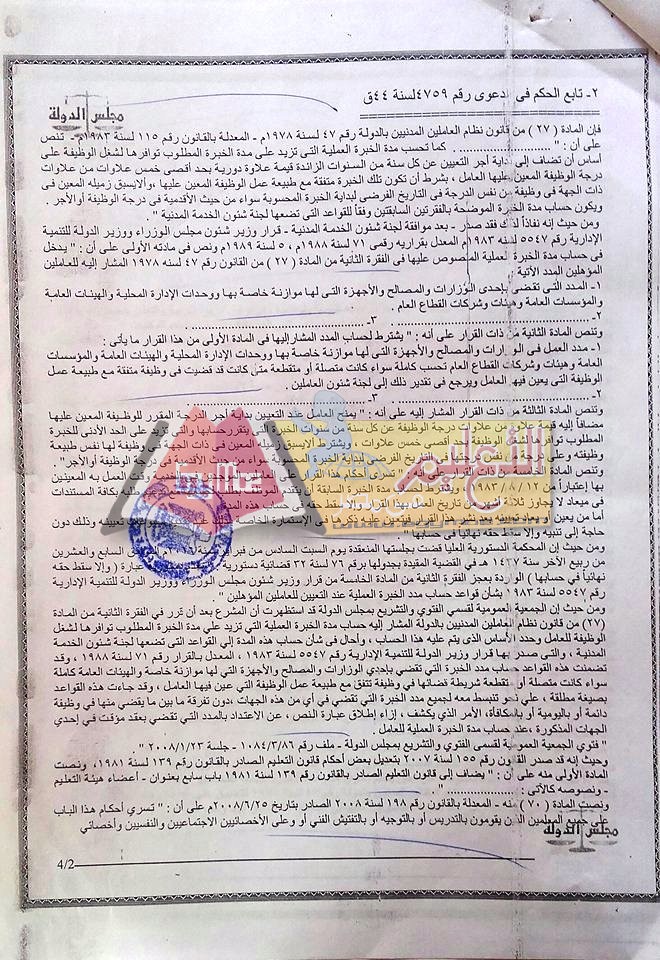 ٢- تابع الحكم فى الدعوى رقم ٤٧٥٩لسنة ٤٤ق
مجلس الدولة
فإن المادة ( ٢٧ ) من قانون نظام العاملين المدنيين بالدولة رقم ٤٧ لسنة ١٩٧٨م - المعدلة بالقانون رقم ١١٥ لسنة ١٩٨٣م - تنص
على أن : " .................... كما تحسب مدة الخبرة العملية التى تزيد على مدة الخبرة المطلوب توافرها لشغل الوظيفة على
أساس أن تضاف إلى بداية أجر التعيين عن كل سنة من السنوات الزائدة قيمة علاوة دورية بحد أقصى خمس علاوات من علاوات
درجة الوظيفة المعين عليها العامل ، بشرط أن تكون تلك الخبرة متفقة مع طبيعة عمل الوظيفة المعين عليها ،وألايسبق زميله المعين فى
ذات الجهة فى وظيفة من نفس الدرجة فى التاريخ الفرضى لبداية الخبرة المحسوبة سواء من حيث الأقدمية فى درجة الوظيفة أوالأجر .
ويكون حساب مدة الخبرة الموضحة بالفقرتين السابقتين وفقاً للقواعد التى تضعها لجنة شئون الخدمة المدنية " .
ومن حيث إنه نفاذاً لذلك فقد صدر - بعد موافقة لجنة شئون الخدمة المدنية - قرار وزير شئون مجلس الوزراء ووزير الدولة للتنمية
الإدارية ٥٥٤٧ لسنه ١٩٨٣م المعدل بقراريه رقمى ٧١ لسنة ١٩٨٨م ، ٥ لسنة ١٩٨٩م ونص فى مادته الأولى على أن : " يدخل
فى حساب مدة الخبرة العملية المنصوص عليها فى الفقرة الثانية من المادة ( ٢٧ ) من القانون رقم ٤٧ لسنه ١٩٧٨ المشار إليه للعاملين
المؤهلين المدد الآتية :
١- المدد التى تقضى بإحدى الوزارات والمصالح والأجهزة التى لها موازنة خاصة بها ووحدات الإدارة المحلية والهيئات العامة
والمؤسسات العامة وهيئات وشركات القطاع العام .
٢- .................... ٣- ....................
وتنص المادة الثانية من ذات القرار على أنه : " يشترط لحساب المدد المشارإليها فى المادة الأولى من هذا القرار ما يأتى :
١- مدد العمل فى الوزارات والمصالح والأجهزة التى لها موازنة خاصة بها ووحدات الإدارة المحلية والهيئات العامة والمؤسسات
العامة وهيئات وشركات القطاع العام تحسب كاملة سواء كانت متصلة أو متقطعة متى كانت قد قضيت فى وظيفة متفقة مع طبيعة عمل
الوظيفة التى يعين فيها العامل ويرجع فى تقدير ذلك إلى لجنة شئون العاملين .
٢- .................... ٣- ....................
وتنص المادة الثالثة من ذات القرار المشار إليه على أنه : " يمنح العامل عند التعيين بداية أجر الدرجة المقرر للوظيفة المعين عليها
مضافاً إليه قيمة علاوة من علاوات درجة الوظيفة عن كل سنة من سنوات الخبرة التى يتقررحسابها والتى تزيد على الحد الأدنى للخبرة
المطلوب توافرها لشغل الوظيفة بحد أقصى خمس علاوات ، ويشترط ألايسبق زميله المعين فى ذات الجهة فى وظيفة لها نفس طبيعة
وظيفته وعلى درجة من نفس درجته فى التاريخ الفرضى لبداية الخبرة المحسوبة سواء من حيث الأقدمية فى درجة الوظيفة أوالأجر" .
وتنص المادة الخامسة من ذات القرار على أن : " تسرى أحكام هذا القرار على العاملين الموجودين بالخدمة وقت العمل به المعينين
بها إعتباراً من ١٢ / ٨ / ١٩٨٣ ، ويشترط لحساب مدة الخبرة السابقة أن يتقدم العامل بطلب بكافة المستندات
فى ميعاد لا يجاوز ثلاثة أشهر من تاريخ العمل بهذا القرار وإلا سقط حقه فى حساب هذه المدة
أما من يعين أو يعاد تعيينه بعد نشر هذا القرار فيتعين عليه ذكرها فى الإستمارة الخاصة بذلك عند تعيينه وذلك دون
حاجة إلى تنبيه وإلا سقط حقه نهائياً فى حسابها" .
ومن حيث إن المحكمة الدستورية العليا قضت بجلستها المنعقدة يوم السبت السادس من فبراير سنة الموافق السابع والعشرين
من ربيع الآخر سنة ١٤٣٧ هـ فى القضية المقيدة بجدولها برقم ٧٦ لسنة ٣٢ قضائية دستورية عبارة ( وإلا سقط حقه
نهائياً في حسابها ) الواردة بعجز الفقرة الثانية من المادة الخامسة من قرار وزير شئون مجلس الوزراء ووزير الدولة للتنمية الإدارية
رقم ٥٥٤٧ لسنه ١٩٨٣ بشأن قواعد حساب مدة الخبرة العملية عند التعيين للعاملين المؤهلين" .
ومن حيث إن الجمعية العمومية لقسمي الفتوي والتشريع بمجلس الدولة قد استظهرت أن المشرع بعد أن قرر في الفقرة الثانية من المادة
(٢٧) من قانون نظام العاملين المدنيين بالدولة المشار إليه حساب مدة الخبرة العملية التي تزيد علي مدة الخبرة المطلوب توافرها لشغل
الوظيفة للعامل وحدد الأساس الذي يتم عليه هذا الحساب ، وأحال في شأن حساب هذه المدة إلي القواعد التى تضعها لجنة شئون الخدمة
المدنية ، والتى صدر بها قرار وزير الدولة للتنمية الإدارية رقم ٥٥٤٧ لسنة ١٩٨٣ ، المعدل بـالقرار رقم ٧١ لسنة ١٩٨٨ ، وقد
تضمنت هذه القواعد حساب مدد الخبرة التي تقضي بإحدي الوزارات والمصالح والأجهزة التي لها موازنة خاصة والهيئات العامة كاملة
سواء كانت متصلة أو متقطعة شريطة قضائها في وظيفة تتفق مع طبيعة عمل الوظيفة التي عين فيها العامل ، وقد جاءت هذه القواعد
بصيغة مطلقة ، علي نحو تنبسط معه لجميع مدد الخبرة التي تقضي في أي من هذه الجهات ،دون تفرقة ما بين ما يقضي منها في وظيفة
دائمة أو باليومية أو بالمكافأة، الأمر الذي يكشف ، إزاء إطلاق عبارة النص ، عن الاعتداد بالمدد التي تقضي بعقد مؤقت في إحدي
الجهات المذكورة ،عند حساب مدة الخبرة العملية للعامل .
" فتوي الجمعية العمومية لقسمى الفتوي والتشريع بمجلس الدولة - ملف رقم ١٠٨٤/٣/٨٦ - جلسة ٢٠٠٨/١/٢٣ "
وحيث إنه قد صدر القانون رقم ١٥٥ لسنة ٢٠٠٧ بتعديل بعض أحكام قانون التعليم الصادر بالقانون رقم ١٣٩ لسنة ١٩٨١، ونصت
المادة الأولى منه على أن : " يضاف إلى قانون التعليم الصادر بالقانون رقم ١٣٩ لسنة ١٩٨١ باب سابع بعنوان - أعضاء هيئة التعليم
- ونصوصه كالآتى : .................... "
ونصت المادة ( ٧٠ ) منه - المعدلة بالقانون رقم ١٩٨ لسنة ٢٠٠٨ الصادر بتاريخ ٢٠٠٨/٦/٢٥م على أن : " تسري أحكام هذا الباب
على جميع المعلمين الذين يقومون بالتدريس أو بالتوجيه أو بالتفتيش الفني أو وعلى الأخصائيين الاجتماعيين والنفسيين وأخصائي
مجلس الدولة
4/2